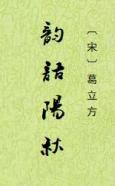 〔宋〕葛立方
韵語陽秋